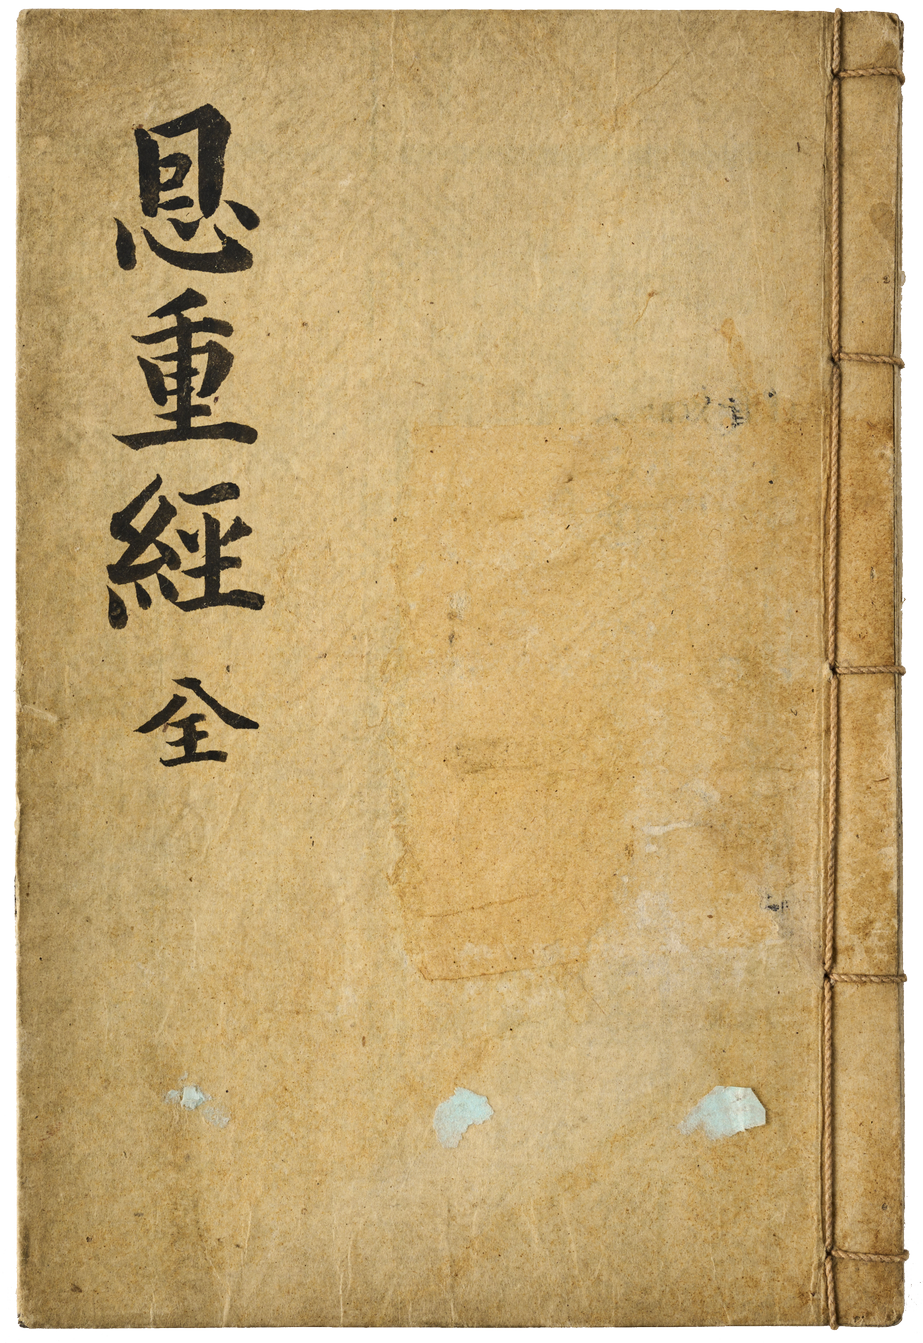 恩重經 全